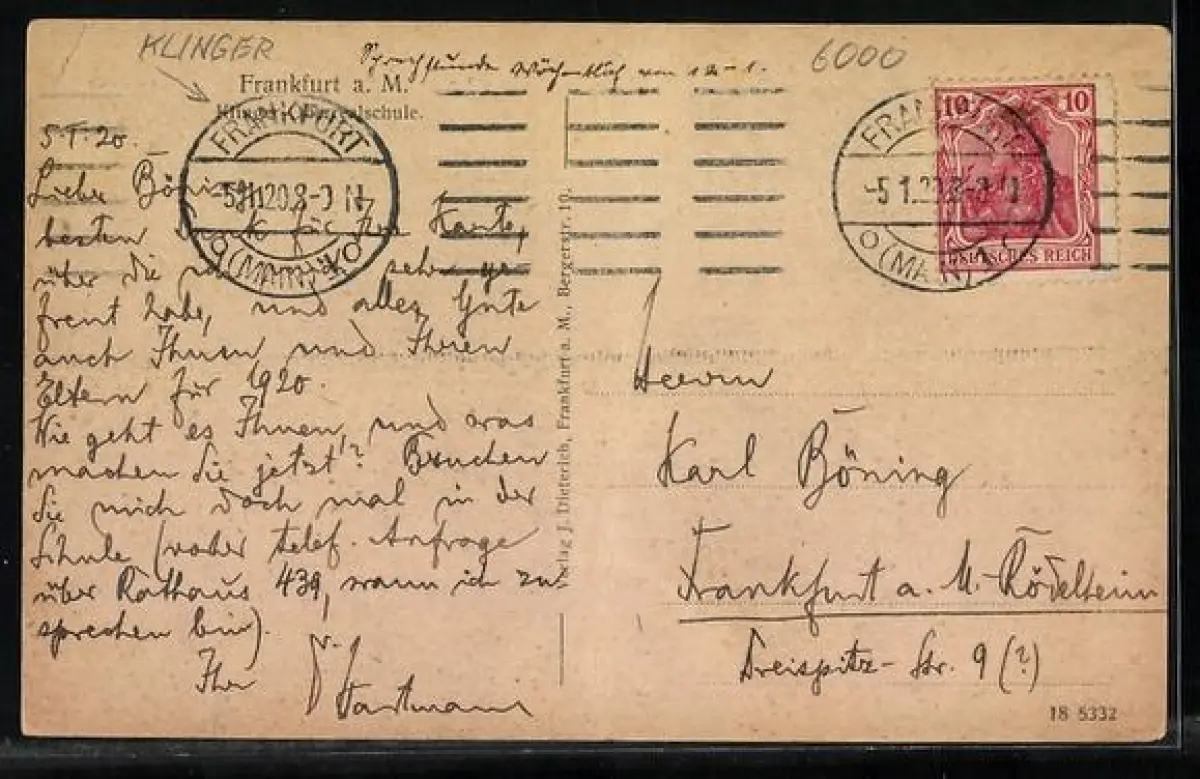 KLINGER
Sprechstunde wöchentlich von 12-1.
6000
Frankfurt a. M.
Klinger-Oberrealschule.
FRANKFURT
-5.1.20.8-9 N
(MAIN)
FRANKFURT
-5.1.20.8-9 N
(MAIN)
10 10
DEUTSCHES REICH
5.I.20.
Lieber Böning,
besten Dank für Ihre Karte,
über die sehr ge-
freut habe, und alles Gute
auch Ihnen und Ihren
Eltern für 1920.
Wie geht es Ihnen, und was
machen Sie jetzt? Besuchen
Sie mich doch mal in der
Schule (vorher telef. Anfrage
über Rathaus 439, wann ich zu
sprechen bin).
Ihr
Hartmann
Verlag J. Dieterich, Frankfurt a. M., Bergerstr. 10.
Herrn
Karl Böning
Frankfurt a. M.-Rödelheim
Dreispitz-Str. 9 (?)
18 5332